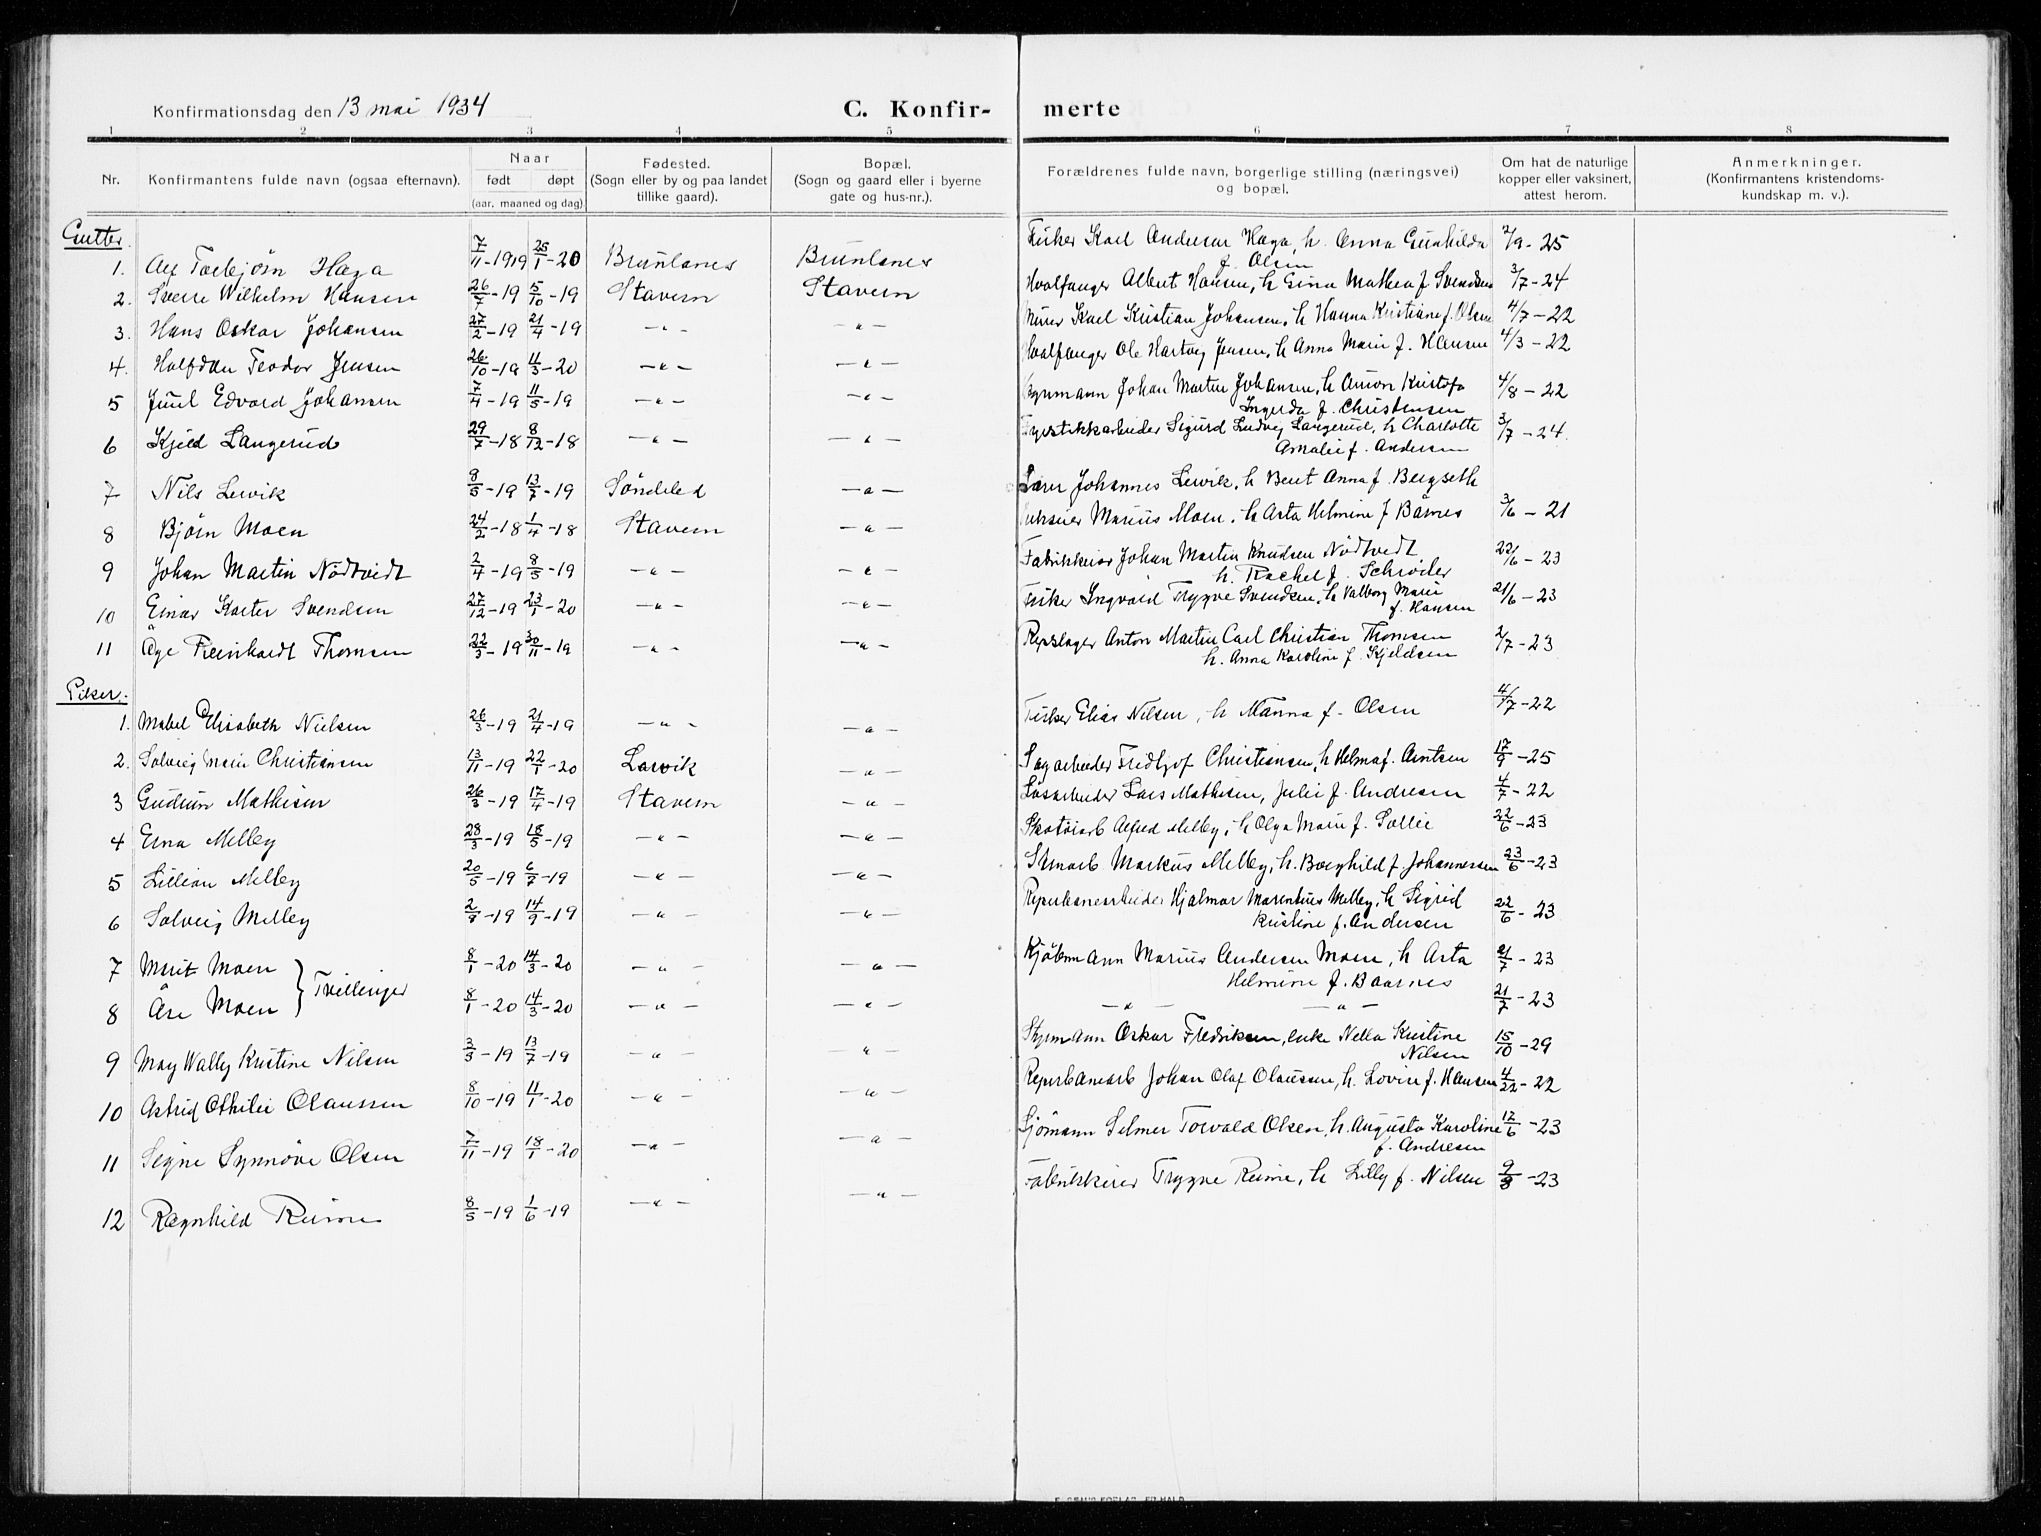 Konfirmationsdag den 13 mai 1934 C. Konfir- merte
1 2 3 4 5 6 7 8
Nr. Konfirmantens fulde navn (ogsaa efternavn). Naar født døpt (aar, maaned og dag) Fødested. (Sogn eller by og paa landet tillike gaard). Bopæl. (Sogn og gaard eller i byerne gate og hus-nr.). Forældrenes fulde navn, borgerlige stilling (næringsvei) og bopæl. Om hat de naturlige kopper eller vaksinert, attest herom. Anmerkninger. (Konfirmantens kristendoms- kundskap m. v.).
Gutter.
1. Alf Torbjörn Haga 7/11-1919 25/1-20 Brunlanes Brunlanes Fisker Karl Andersen Haga, h. Anna Gunhilda f. Olsen 2/9-25
2. Sverre Wilhelm Hansen 26/7-19 5/10-19 Stavern Stavern Hvalfanger Albert Hansen, h Gina Mathea f Svendsen 3/7-24
3. Hans Oskar Johansen 27/2-19 21/4-19 -"- -"- Murer Karl Kristian Johansen, h Hanna Kristiane f. Olsen 4/7-22
4. Halfdan Teodor Jensen 26/10-19 11/3-20 -"- -"- Hvalfanger Ole Hartvig Jensen, h Anna Marie f. Hansen 4/3-22
5 Juul Edvard Johansen 7/4-19 11/5-19 -"- -"- Johan Martin Johansen, h Kristofa
Ingerda f. Christensen 4/8-22
6 Kjeld Langerud 29/7-18 8/12-18 -"- -"- Fyrstikkarbeider Sigurd Ludvig Langerud, h Charlotte
Amalie f. Andersen 3/7-24
7 Nils Levik 8/5-19 13/7-19 Söndeled -"- Lærer Johannes Levik, h Berit Anna f. Bergseth
8 Björn Moen 24/2-18 1/4-18 Stavern -"- Marius Moen, h Asta Helmine f Bårnes 3/6-21
9 Johan Martin Nödtvedt 2/4-19 8/5-19 -"- -"- Fabrikkeier Johan Martin Knudsen Nödtvedt
h. Rachel f. Schröder 22/6-23
10 Einar Karter Svendsen 27/12-19 23/1-20 -"- -"- Fisker Ingvald Trygve Svendsen, h Valborg Marie
f. Hansen 21/6-23
11 Åge Reinhardt Thomsen 22/3-19 30/11-19 -"- -"- Repslager Anton Martin Carl Christian Thomsen
h. Anna Karoline f. Kjeldsen 2/7-23
Piker.
1. Mabel Elisabeth Nielsen 26/3-19 21/4-19 -"- -"- Fisker Elias Nilsen, h Manna f. Olsen 4/7-22
2. Solveig Marie Christiansen 13/11-19 22/1-20 Larvik -"- Sagarbeider Fredtjof Christiansen, h Helma f. Arntsen 17/9-25
3 Gudrun Mathisen 26/3-19 17/4-19 Stavern -"- Løsarbeider Lars Mathisen, Julie f. Andresen 4/7-22
4 Erna Melby 28/3-19 18/5-19 -"- -"- Skotöiarb Alfred Melby, h Olga Marie f. Sollie 22/6-23
5 Lillian Melby 20/5-19 6/7-19 -"- -"- Stenarb Markus Melby, h. Borghild f. Johannessen 23/6-23
6 Solveig Melby 2/8-19 14/9-19 -"- -"- Reperbanearbeider Hjalmar Marentius Melby, h Sigrid
Kristine f. Andersen 22/6-23
7 Marit Moen } Tvillinger 8/1-20 14/3-20 -"- -"- Kjöbmann Marius Andersen Moen, h Asta
Helmine f. Baarnes 21/7-23
8 Åse Moen 8/1-20 14/3-20 -"- -"- -"- -"- 21/7-23
9 May Wally Kristine Nilsen 3/3-19 13/7-19 -"- -"- Styrmann Oskar Fredriksen, enke Nella Kristine
Nilsen 15/10-29
10 Astrid Othilie Olaussen 8/10-19 11/1-20 -"- -"- Reperbanearb Johan Olaf Olaussen, h. Lovise f. Hansen 4/22-22
11 Signe Synnöve Olsen 7/11-19 18/1-20 -"- -"- Sjömann Selmer Torvald Olsen, h. Augusta Karoline
f. Andresen 17/6-23
12 Ragnhild Reime 8/5-19 1/6-19 -"- -"- Fabrikkeier Trygve Reime, h Lilly f. Nilsen 9/8-23